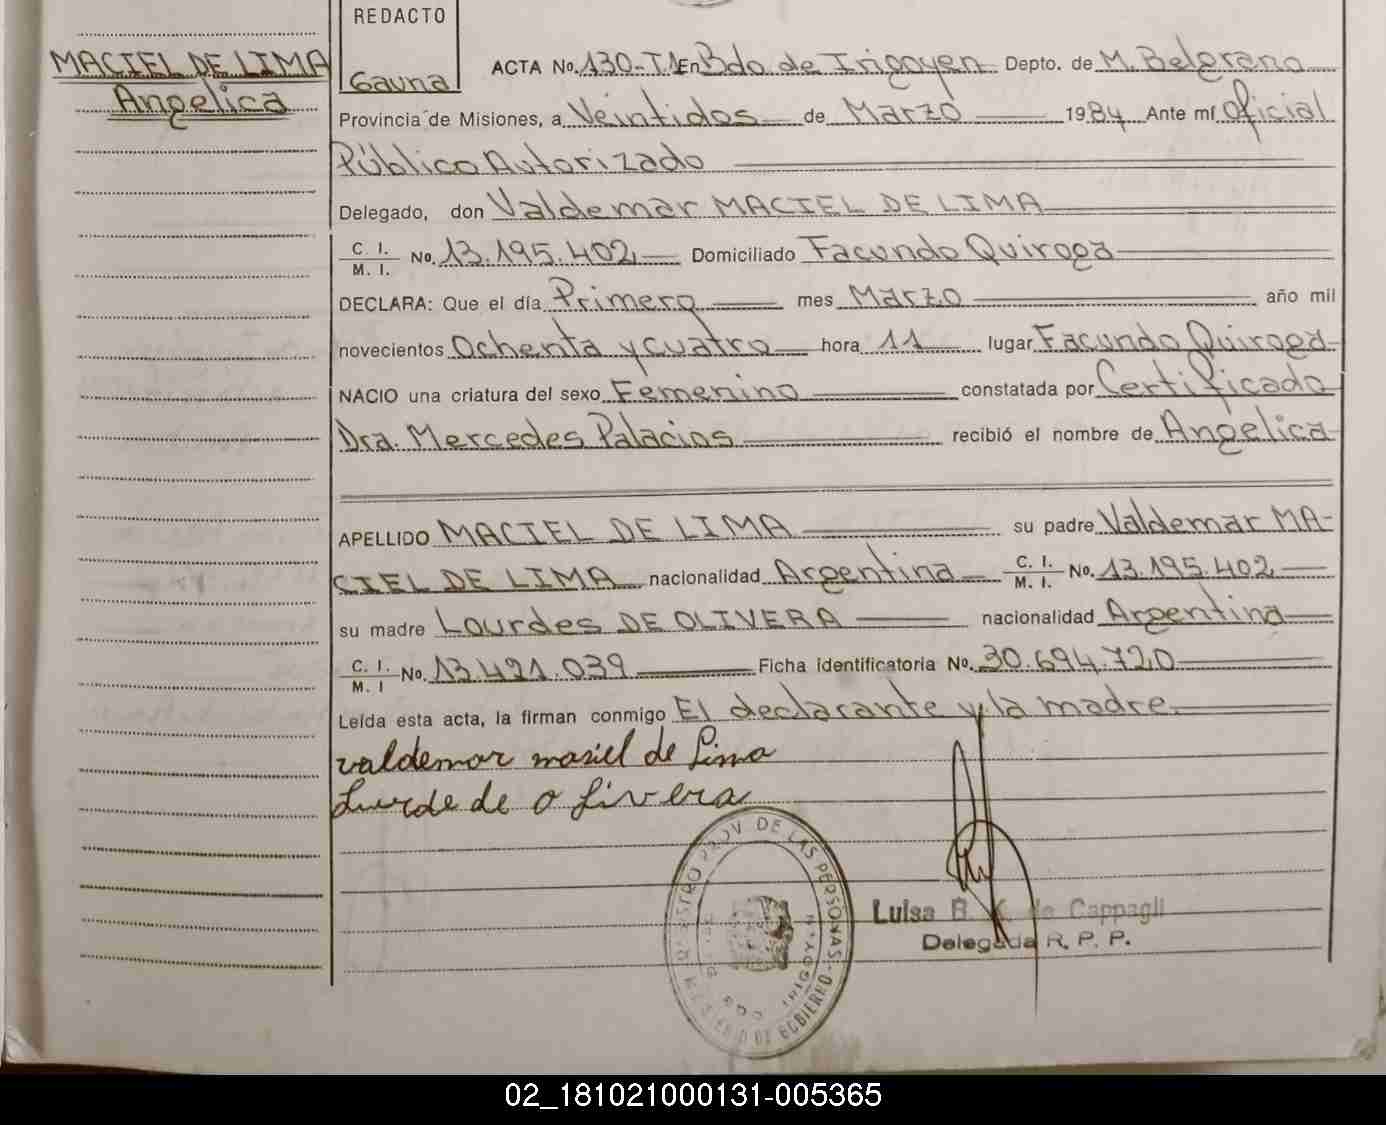 MACIEL DE LIMA
Angelica
REDACTO
Gauna
ACTA No. 130-T.1 En Bdo de Irigoyen Depto. de M. Belgrano
Provincia de Misiones, a Veintidos de Marzo 1984 Ante mí Oficial
Público Autorizado
Delegado, don Valdemar MACIEL DE LIMA
C. I.
M. I. No. 13.195.402 Domiciliado Facundo Quiroga
DECLARA: Que el día Primero mes Marzo año mil
novecientos Ochenta y cuatro hora 11 lugar Facundo Quiroga
NACIO una criatura del sexo Femenino constatada por Certificado
Dra. Mercedes Palacios recibió el nombre de Angelica
APELLIDO MACIEL DE LIMA su padre Valdemar MA-
CIEL DE LIMA nacionalidad Argentina C. I. M. I. No. 13.195.402
su madre Lourdes DE OLIVERA nacionalidad Argentina
C. I.
M. I No. 13.421.039 Ficha identificatoria No. 30.694.720
Leída esta acta, la firman conmigo El declarante y la madre.
valdemar masiel de Lima
Lurde de o Livera
REGISTRO PROV. DE LAS PERSONAS - MINISTERIO DE GOBIERNO
BDO. IRIGOYEN
Luisa B. K. de Cappagli
Delegada R. P. P.
02_181021000131-005365